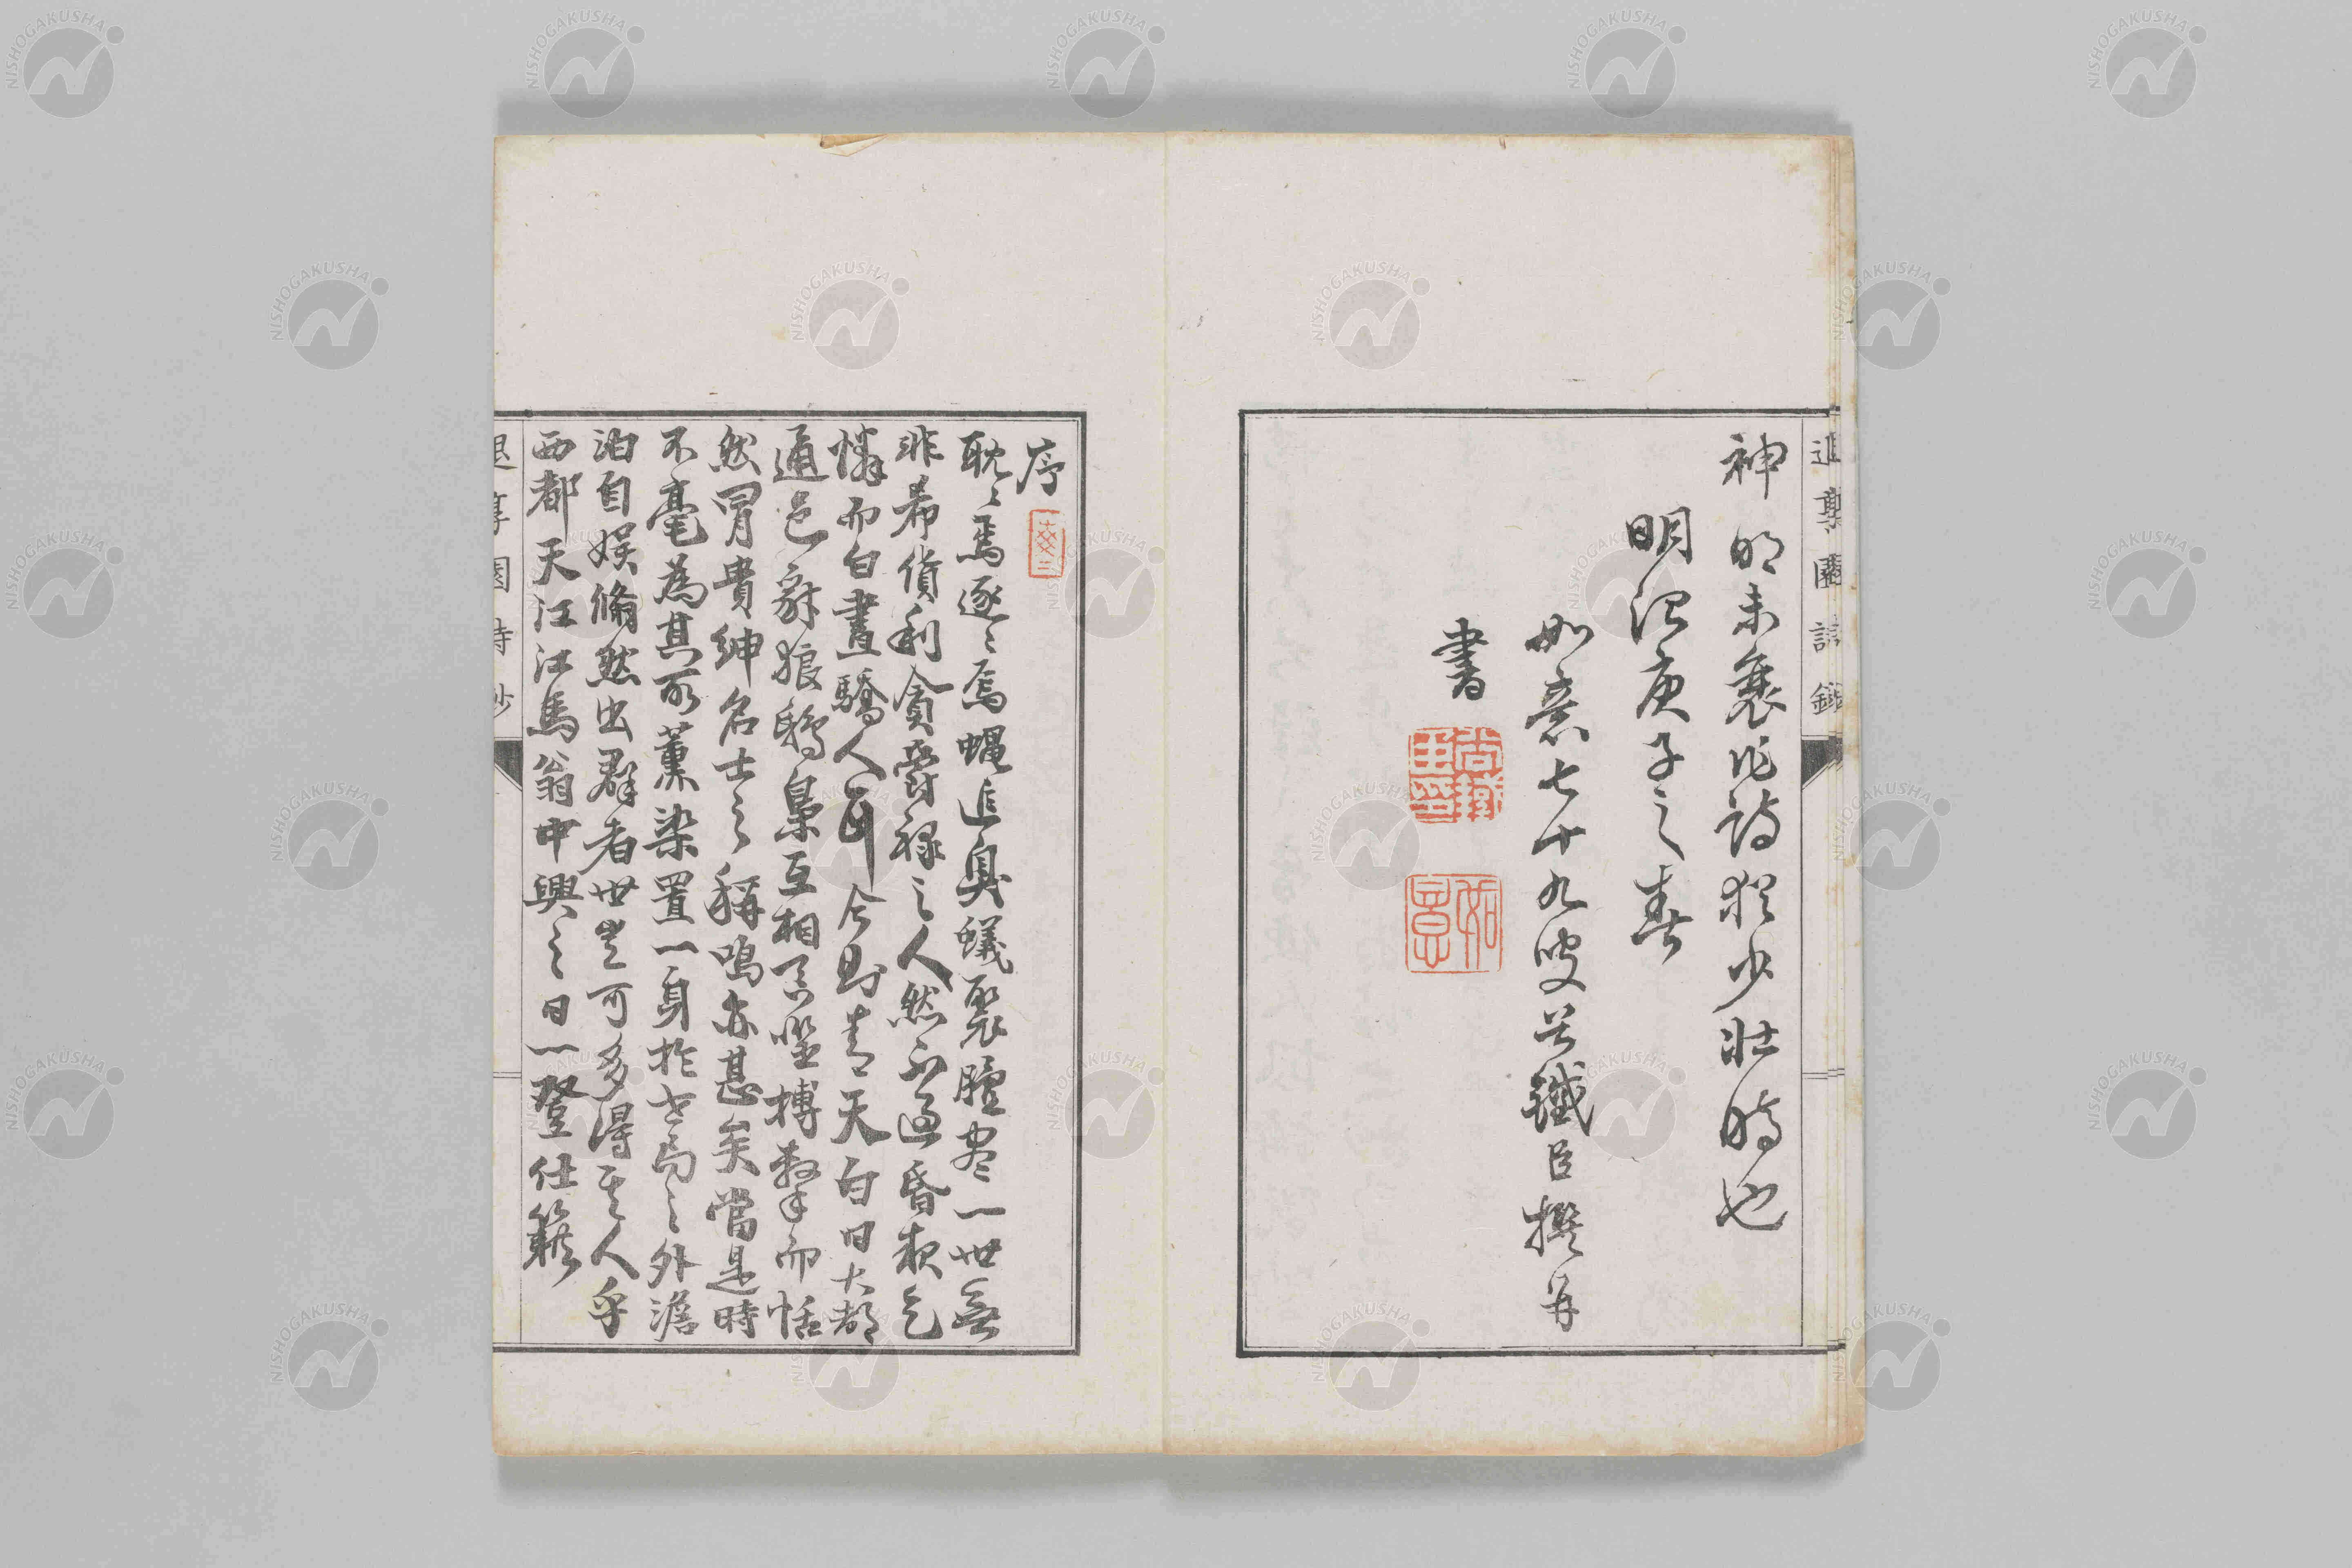 退享園詩鈔
神明未衰作詩猶少壯時也
明治庚子之春
如意七十九叟谷鐵臣撰并
書
如意
序
耽〻焉逐〻焉蠅追臭蟻聚膻盡一世無
非希貨利貪爵祿之人然不過昏夜乞
憐而白晝驕人耳今則青天白日大都
通邑豺狼鴟梟互相呑噬搏擊而恬
然冒貴紳名士之稱嗚亦甚矣當是時
不毫為其所薰染置一身於世局之外澹
泊自娯翛然出群者世豈可多得其人乎
西都天江江馬翁中興之日一登仕籍
退享園詩鈔
NISHOGAKUSHA